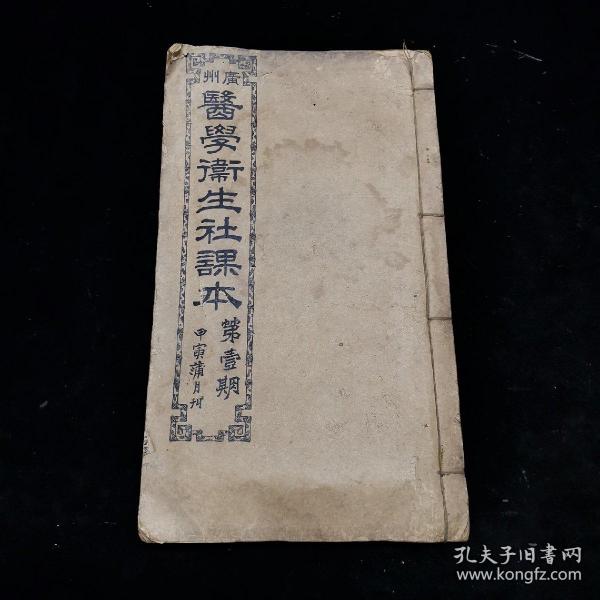 廣州
醫學衞生社課本
第壹期
甲寅蒲月刊
孔夫子旧书网
www.kongfz.com